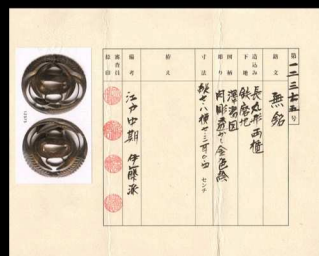 第一二三七五号
銘文 無銘
造込み 長丸形 両櫃
下地 鉄磨地
図柄
彫り 肉彫透かし 金色絵
寸法 縦七・八 横七・三 耳 センチ
拵え
備考 江戸中期 伊藤派
審査員
検印